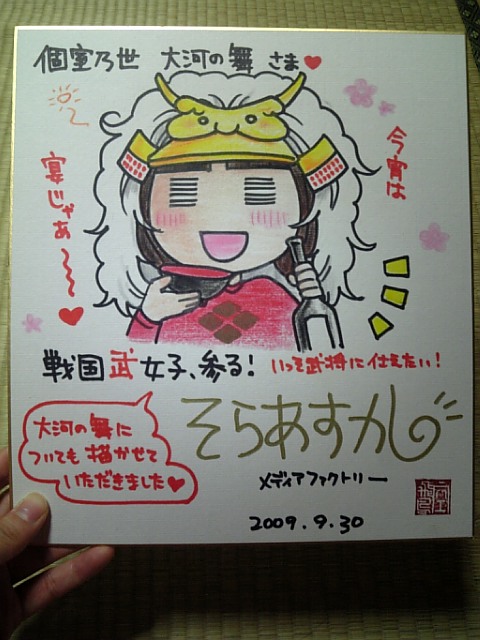 個室乃世 大河の舞 さま♥
今宵は
宴じゃあ〜〜♥
戦国武女子、参る! いっそ武将に仕えたい!
大河の舞に
ついても描かせて
いただきました♥
そらあすか
メディアファクトリー
2009.9.30